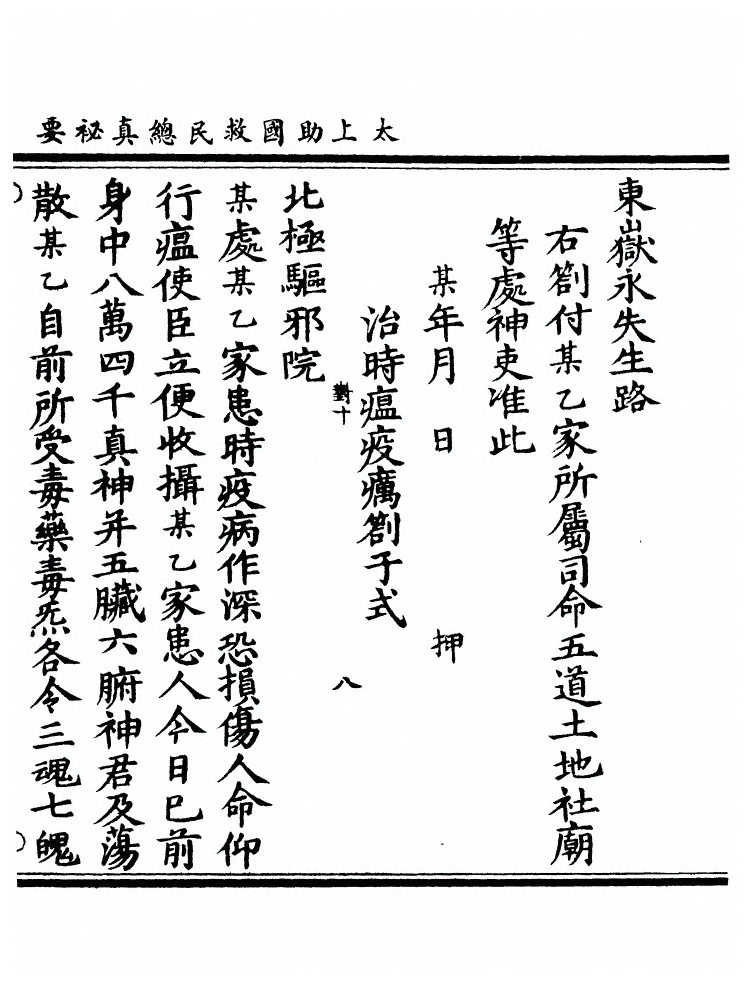 太上助國救民總真祕要
東嶽永失生路
右劄付某乙家所屬司命五道土地社廟
等處神吏准此
某年月日　押
治時瘟疫癘劄子式
對十　八
北極驅邪院
某處某乙家患時疫病作深恐損傷人命仰
行瘟使臣立便收攝某乙家患人今日已前
身中八萬四千真神并五臟六腑神君及蕩
散某乙自前所受毒藥毒炁各令三魂七魄